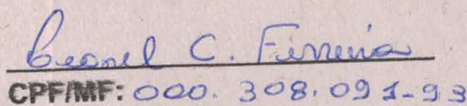 Leonel C. Ferreira
CPF/MF: 000. 308.091-93